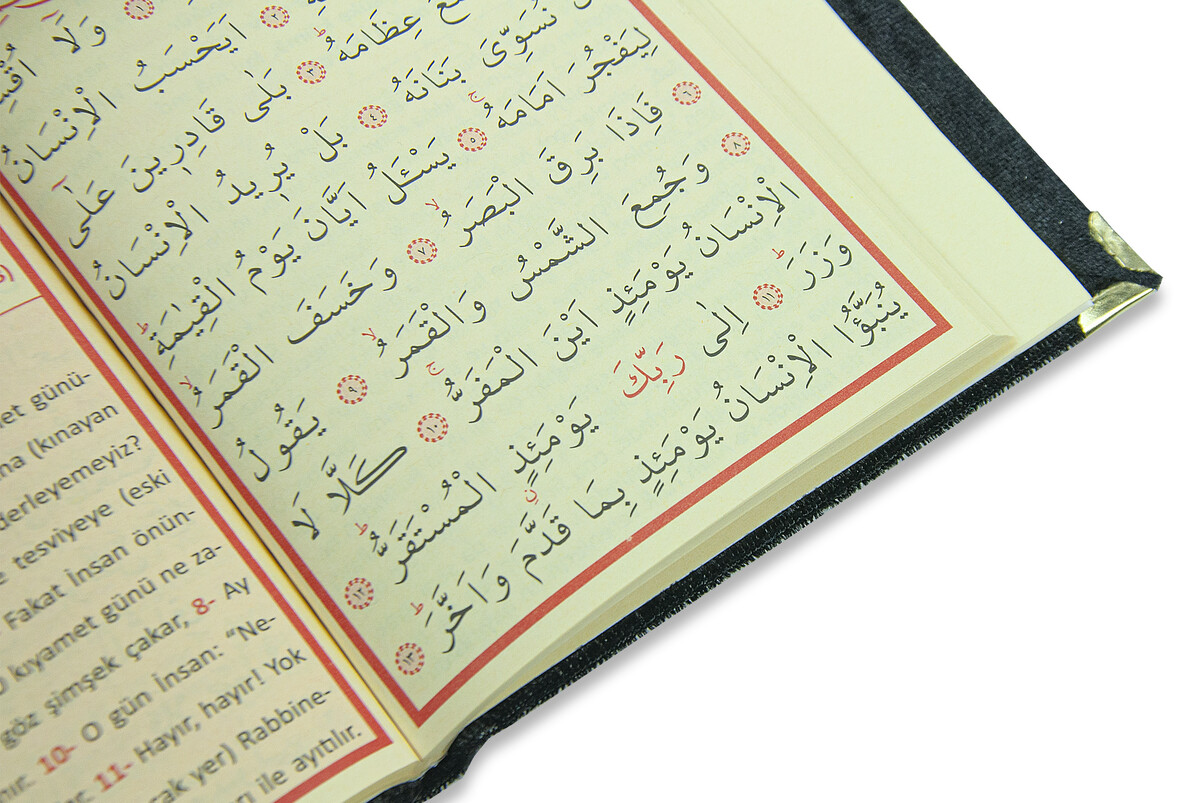 وَلَٓا
اَيَحْسَبُ الْاِنْسَانُ
عِظَامَهُۜ ﴿٣﴾ بَلٰى قَادِر۪ينَ عَلٰٓى
نُسَوِّيَ بَنَانَهُ ﴿٤﴾ بَلْ يُر۪يدُ الْاِنْسَانُ
لِيَفْجُرَ اَمَامَهُۚ ﴿٥﴾ يَسْـَٔلُ اَيَّانَ يَوْمُ الْقِيٰمَةِۜ
﴿٦﴾ فَاِذَا بَرِقَ الْبَصَرُۙ ﴿٧﴾ وَخَسَفَ الْقَمَرُۙ
﴿٨﴾ وَجُمِعَ الشَّمْسُ وَالْقَمَرُۙ ﴿٩﴾ يَقُولُ
الْاِنْسَانُ يَوْمَئِذٍ اَيْنَ الْمَفَرُّۚ ﴿١٠﴾ كَلَّا لَا
وَزَرَۜ ﴿١١﴾ اِلٰى رَبِّكَ يَوْمَئِذٍ الْمُسْتَقَرُّۜ ﴿١٢﴾
يُنَبَّؤُا الْاِنْسَانُ يَوْمَئِذٍ بِمَا قَدَّمَ وَاَخَّرَۜ ﴿١٣﴾
günü-
(kınayan
derleyemeyiz?
tesviyeye (eski
Fakat İnsan önün-
kıyamet günü ne za-
göz şimşek çakar, 8- Ay
10- O gün İnsan: “Ne-
11- Hayır, hayır! Yok
yer) Rabbine-
ile ayıtılır.